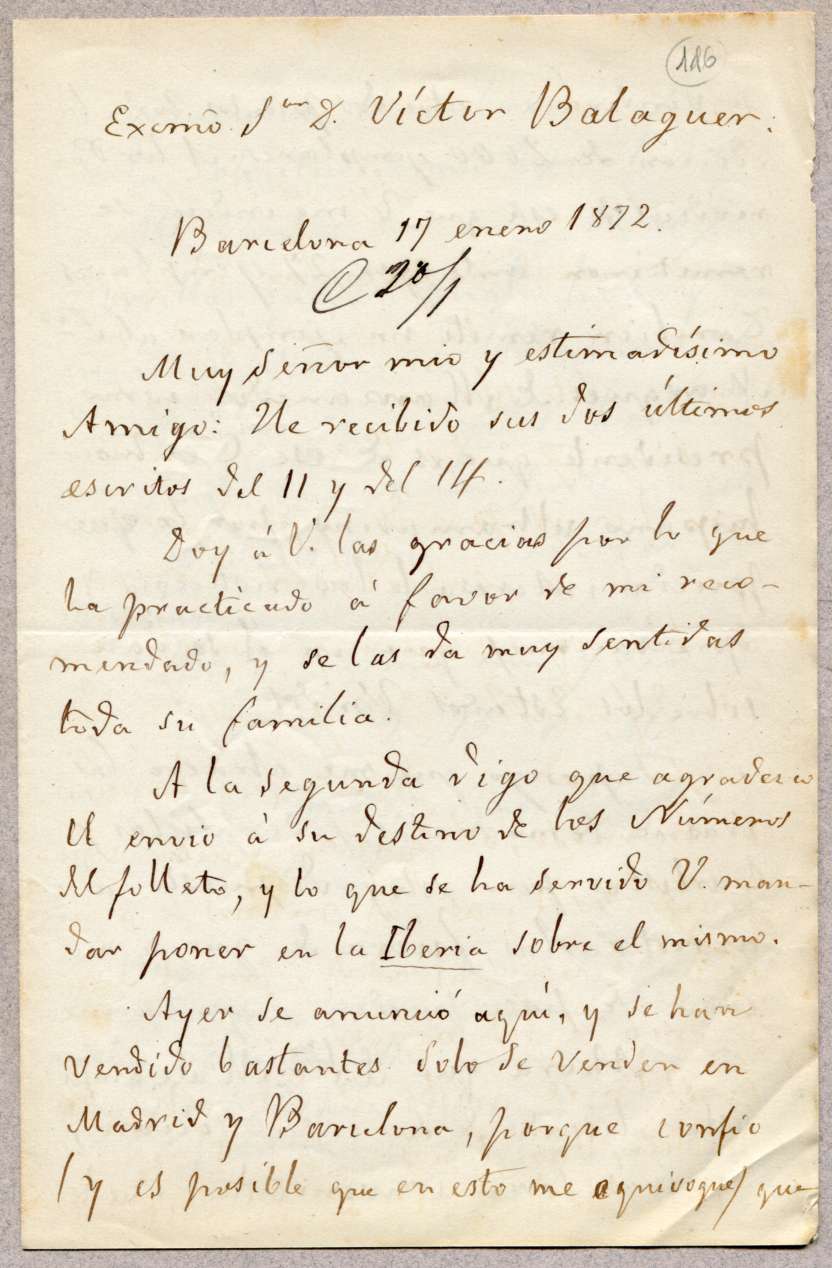 116
Excmõ. Sᵒʳ D. Víctor Balaguer.
Barcelona 17 enero 1872.
C 20/1
Muy Señor mio y estimadísimo
Amigo: He recibido sus dos últimos
escritos del 11 y del 14.
Doy á V. las gracias por lo que
ha practicado á favor de mi reco-
mendado, y se las da muy sentidas
toda su familia.
A la segunda digo que agradezco
el envio á su destino de los Números
del folleto, y lo que se ha servido V. man-
dar poner en la Iberia sobre el mismo.
Ayer se anunció aquí, y se han
vendido bastantes. Solo se venden en
Madrid y Barcelona, porque confio
(y es posible que en esto me equivoque) que